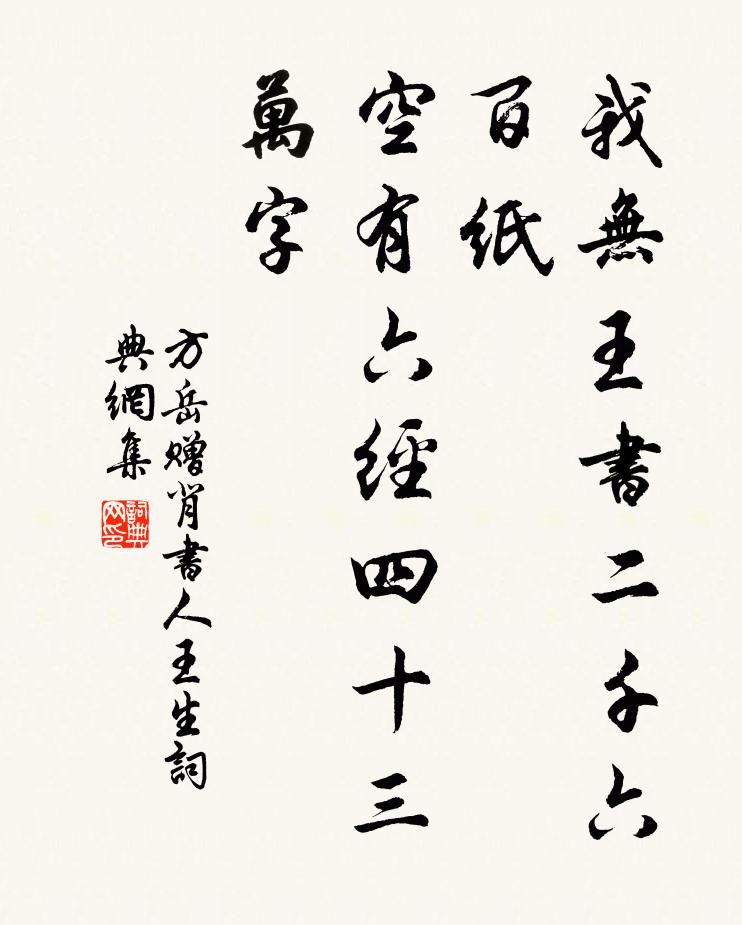 我無王書二千六
百紙
空有六經四十三
萬字
方岳贈肖書人王生詞
典網集
詞典网印